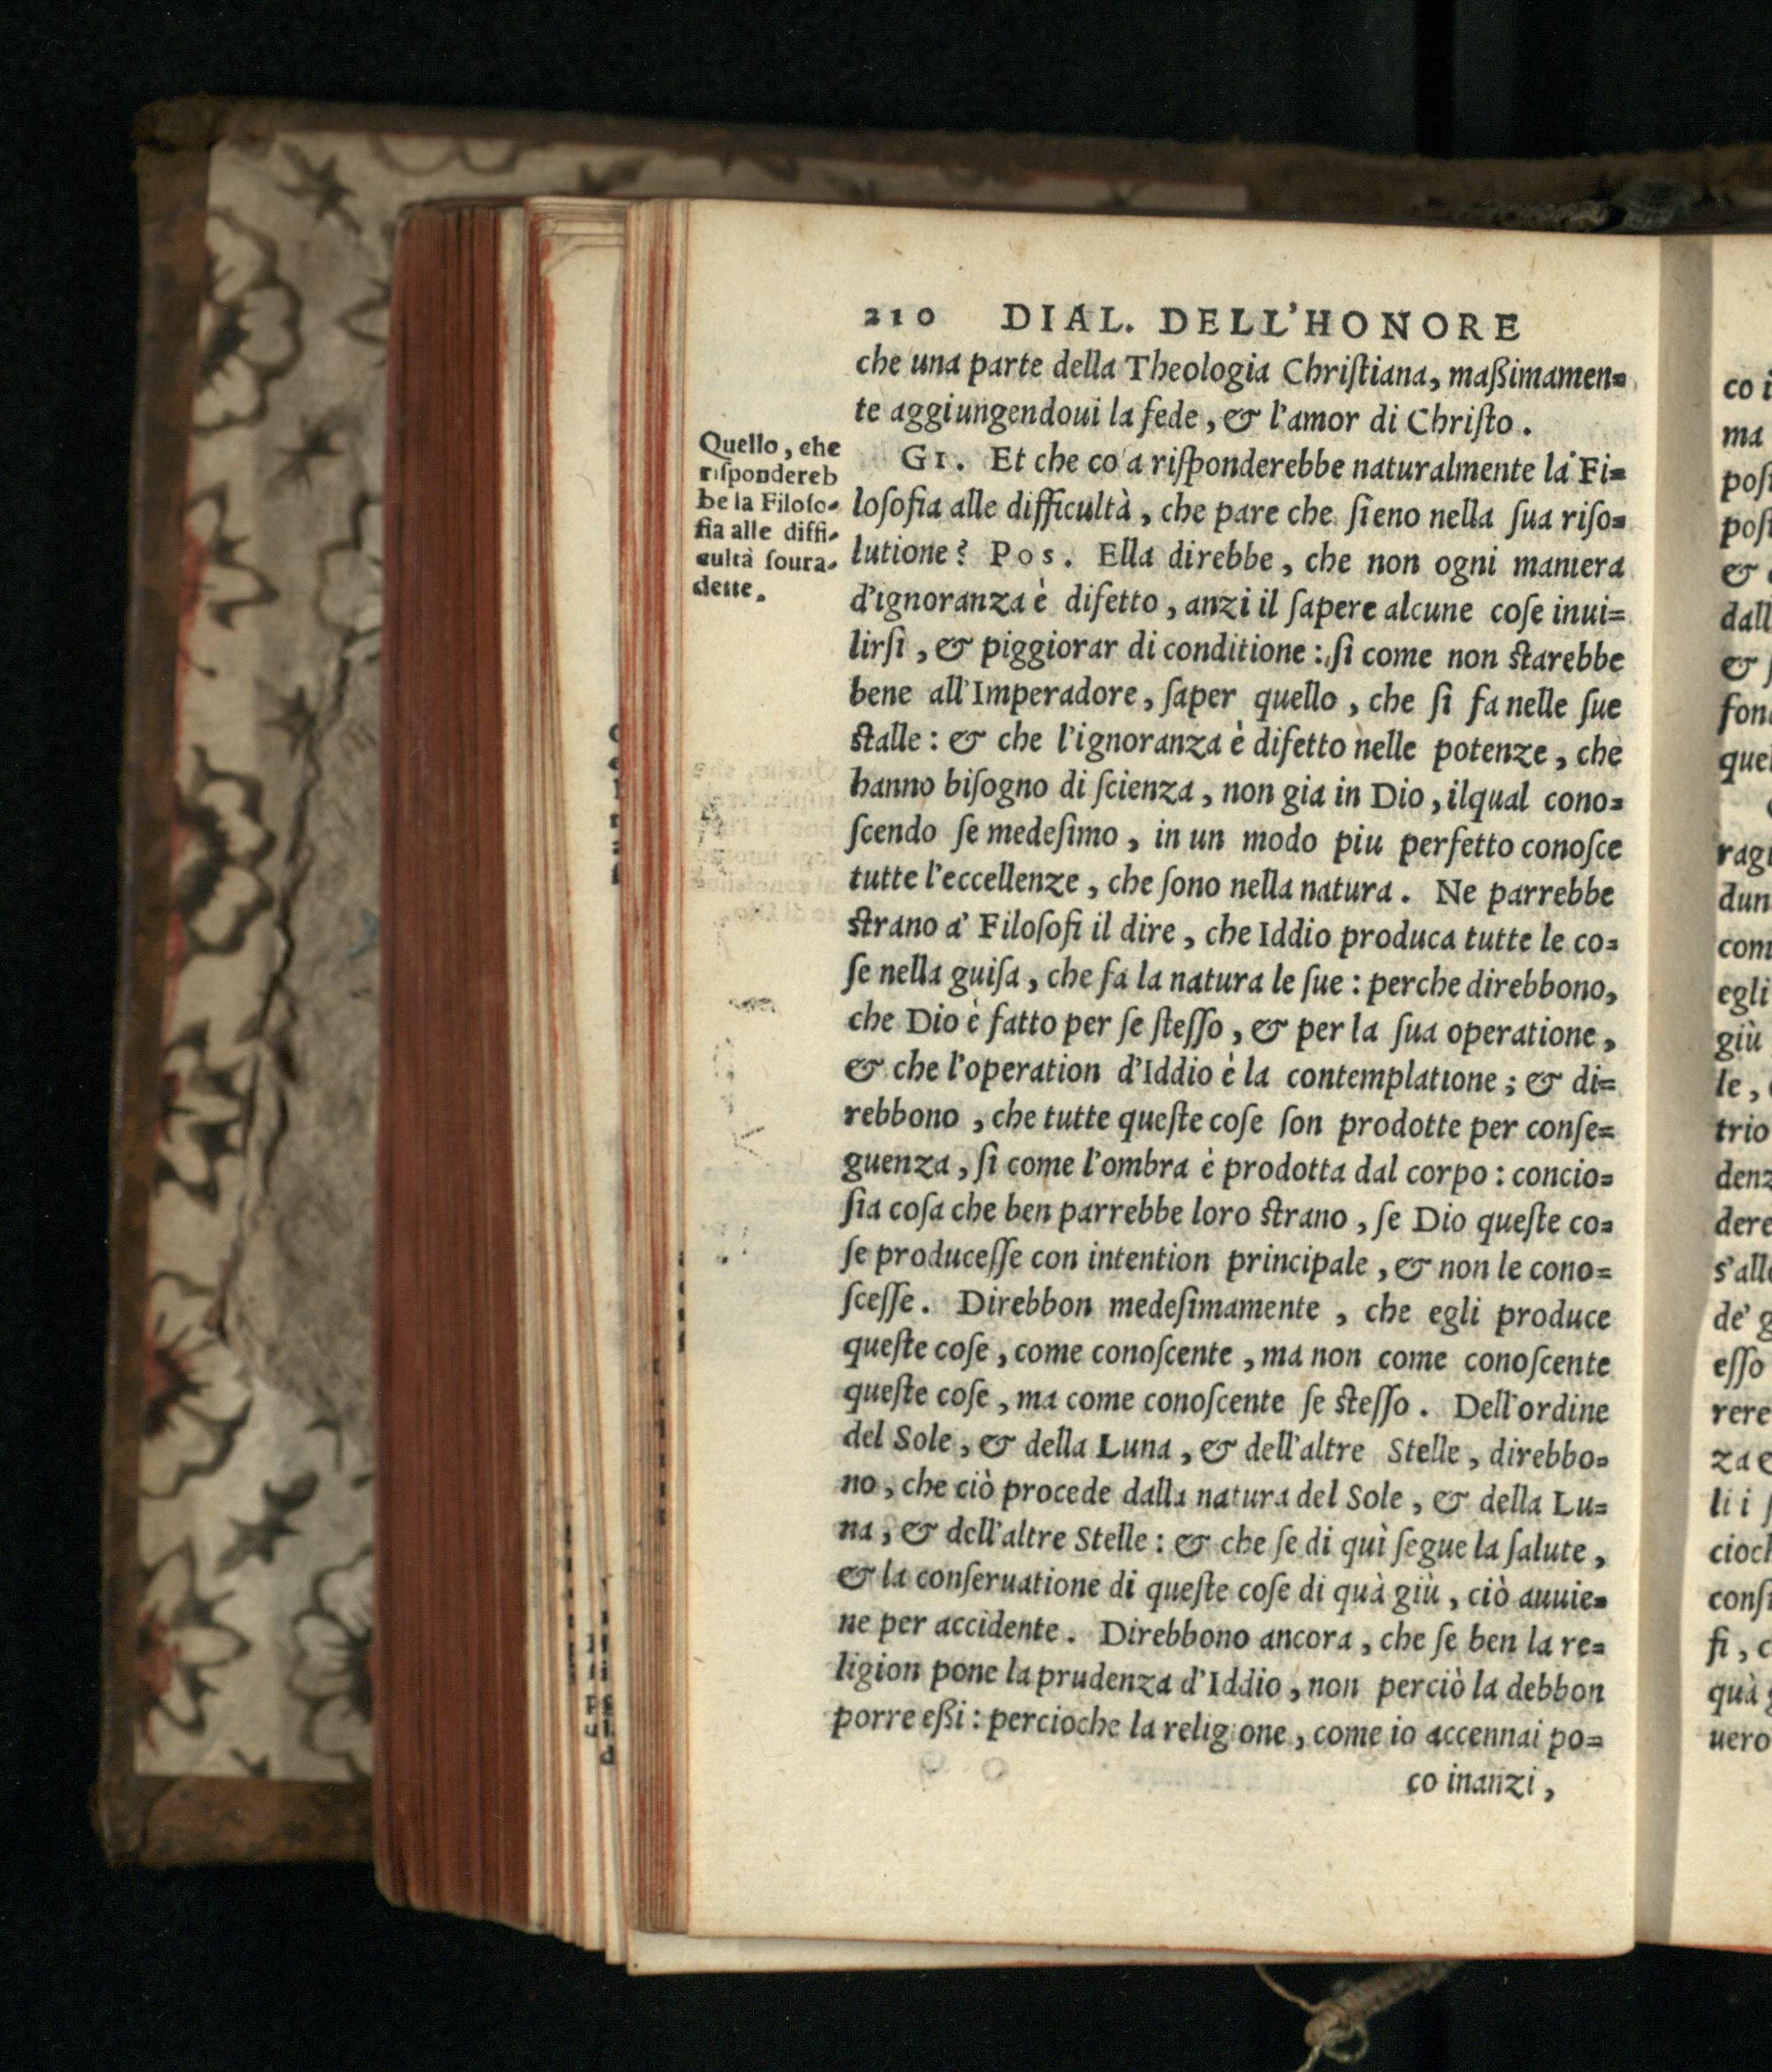 210 DIAL. DELL'HONORE
che una parte della Theologia Chriſtiana, maßimamen=
te aggiungendoui la fede, & l'amor di Chriſto.
Quello, che
riſpondereb
be la Filoſo-
fia alle diffi-
cultà ſoura-
dette.
GI. Et che co a riſponderebbe naturalmente la Fi=
loſofia alle difficultà, che pare che ſieno nella ſua riſo=
lutione? Pos. Ella direbbe, che non ogni maniera
d'ignoranza è difetto, anzi il ſapere alcune coſe inui=
lirſi, & piggiorar di conditione: ſi come non ſtarebbe
bene all'Imperadore, ſaper quello, che ſi fa nelle ſue
ſtalle: & che l'ignoranza è difetto nelle potenze, che
hanno biſogno di ſcienza, non gia in Dio, ilqual cono=
ſcendo ſe medeſimo, in un modo piu perfetto conoſce
tutte l'eccellenze, che ſono nella natura. Ne parrebbe
ſtrano a' Filoſofi il dire, che Iddio produca tutte le co=
ſe nella guiſa, che fa la natura le ſue: perche direbbono,
che Dio è fatto per ſe ſteſſo, & per la ſua operatione,
& che l'operation d'Iddio è la contemplatione; & di=
rebbono, che tutte queſte coſe ſon prodotte per conſe=
guenza, ſi come l'ombra è prodotta dal corpo: concio=
ſia coſa che ben parrebbe loro ſtrano, ſe Dio queſte co=
ſe produceſſe con intention principale, & non le cono=
ſceſſe. Direbbon medeſimamente, che egli produce
queſte coſe, come conoſcente, ma non come conoſcente
queſte coſe, ma come conoſcente ſe ſteſſo. Dell'ordine
del Sole, & della Luna, & dell'altre Stelle, direbbo=
no, che ciò procede dalla natura del Sole, & della Lu=
na, & dell'altre Stelle: & che ſe di quì ſegue la ſalute,
& la conſeruatione di queſte coſe di quà giù, ciò auuie=
ne per accidente. Direbbono ancora, che ſe ben la re=
ligion pone la prudenza d'Iddio, non perciò la debbon
porre eßi: percioche la religione, come io accennai po=
co inanzi,
co i
ma
poſ
poſ
&
dall
&
fon
quel
ragi
dun
com
egli
giù
le,
trio
denz
dere
s'all
de' g
eſſo
rere
za e
li i
cioch
conſ
fi, c
quà
uero